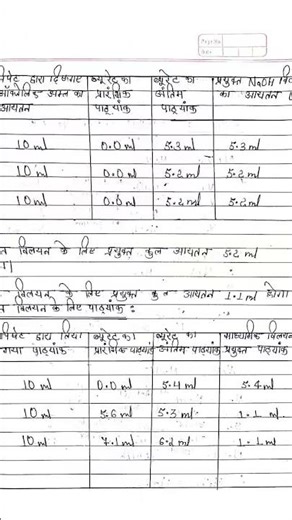 पिपेट द्वारा लिया गया ब्यूरेट का ब्यूरेट का प्रयुक्त NaOH वि
ऑक्जेलिक अम्ल का प्रारंभिक अंतिम का आयतन
आयतन पाठ्यांक पाठ्यांक
10 ml 0.0 ml 5.3 ml 5.3 ml
10 ml 0.0 ml 5.2 ml 5.2 ml
10 ml 0.0 ml 5.2 ml 5.2 ml
विलयन के लिए प्रयुक्त कुल आयतन 5.2 ml
विलयन के लिए प्रयुक्त कुल आयतन 1.1 ml होगा
विलयन के लिए पाठ्यांक :
पिपेट द्वारा लिया ब्यूरेट का ब्यूरेट का माध्यमिक विलयन
गया पाठ्यांक प्रारंभिक पाठ्यांक अंतिम पाठ्यांक प्रयुक्त पाठ्यांक
10 ml 0.0 ml 5.4 ml 5.4 ml
10 ml 5.6 ml 5.3 ml 1.1 ml
10 ml 7.1 ml 6.2 ml 1.1 ml